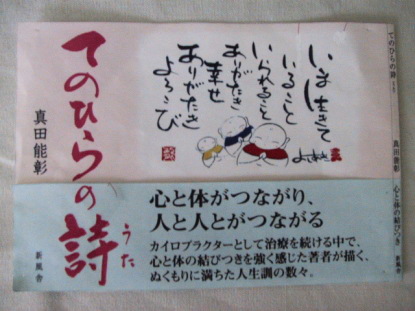 てのひらの詩
うた
真田能彰
新風舎
いま生きて
いること
いられること
ありがたき
幸せ
ありがたき
よろこび
よしあき
心と体がつながり、
人と人とがつながる
カイロプラクターとして治療を続ける中で、
心と体の結びつきを強く感じた著者が描く、
ぬくもりに満ちた人生訓の数々。
てのひらの詩
真田能彰
心と体の結びつき
新風舎